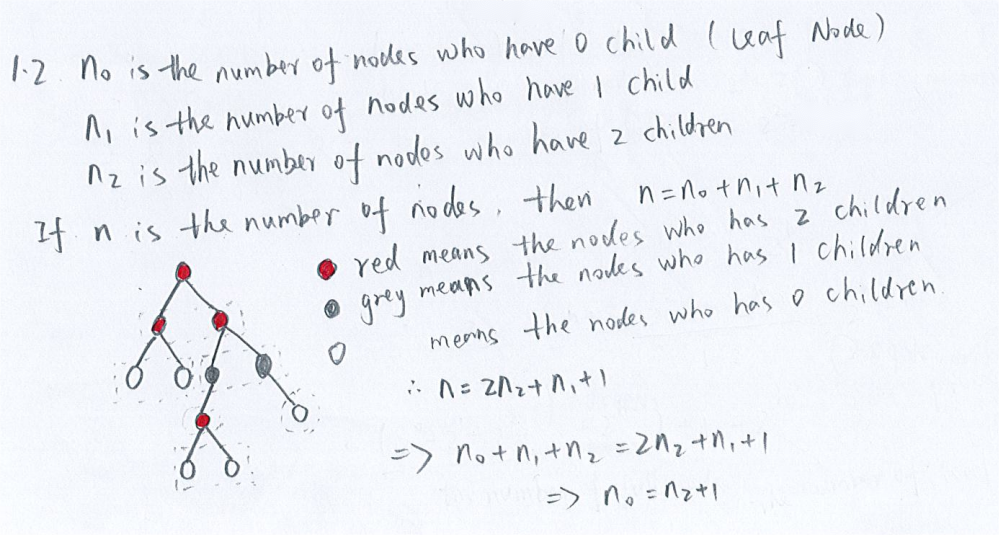 1.2 n₀ is the number of nodes who have 0 child (Leaf Node)
n₁ is the number of nodes who have 1 child
n₂ is the number of nodes who have 2 children
If n is the number of nodes, then n=n₀+n₁+n₂
red means the nodes who has 2 children
grey means the nodes who has 1 children
means the nodes who has 0 children
∴ n=2n₂+n₁+1
=> n₀+n₁+n₂=2n₂+n₁+1
=> n₀=n₂+1